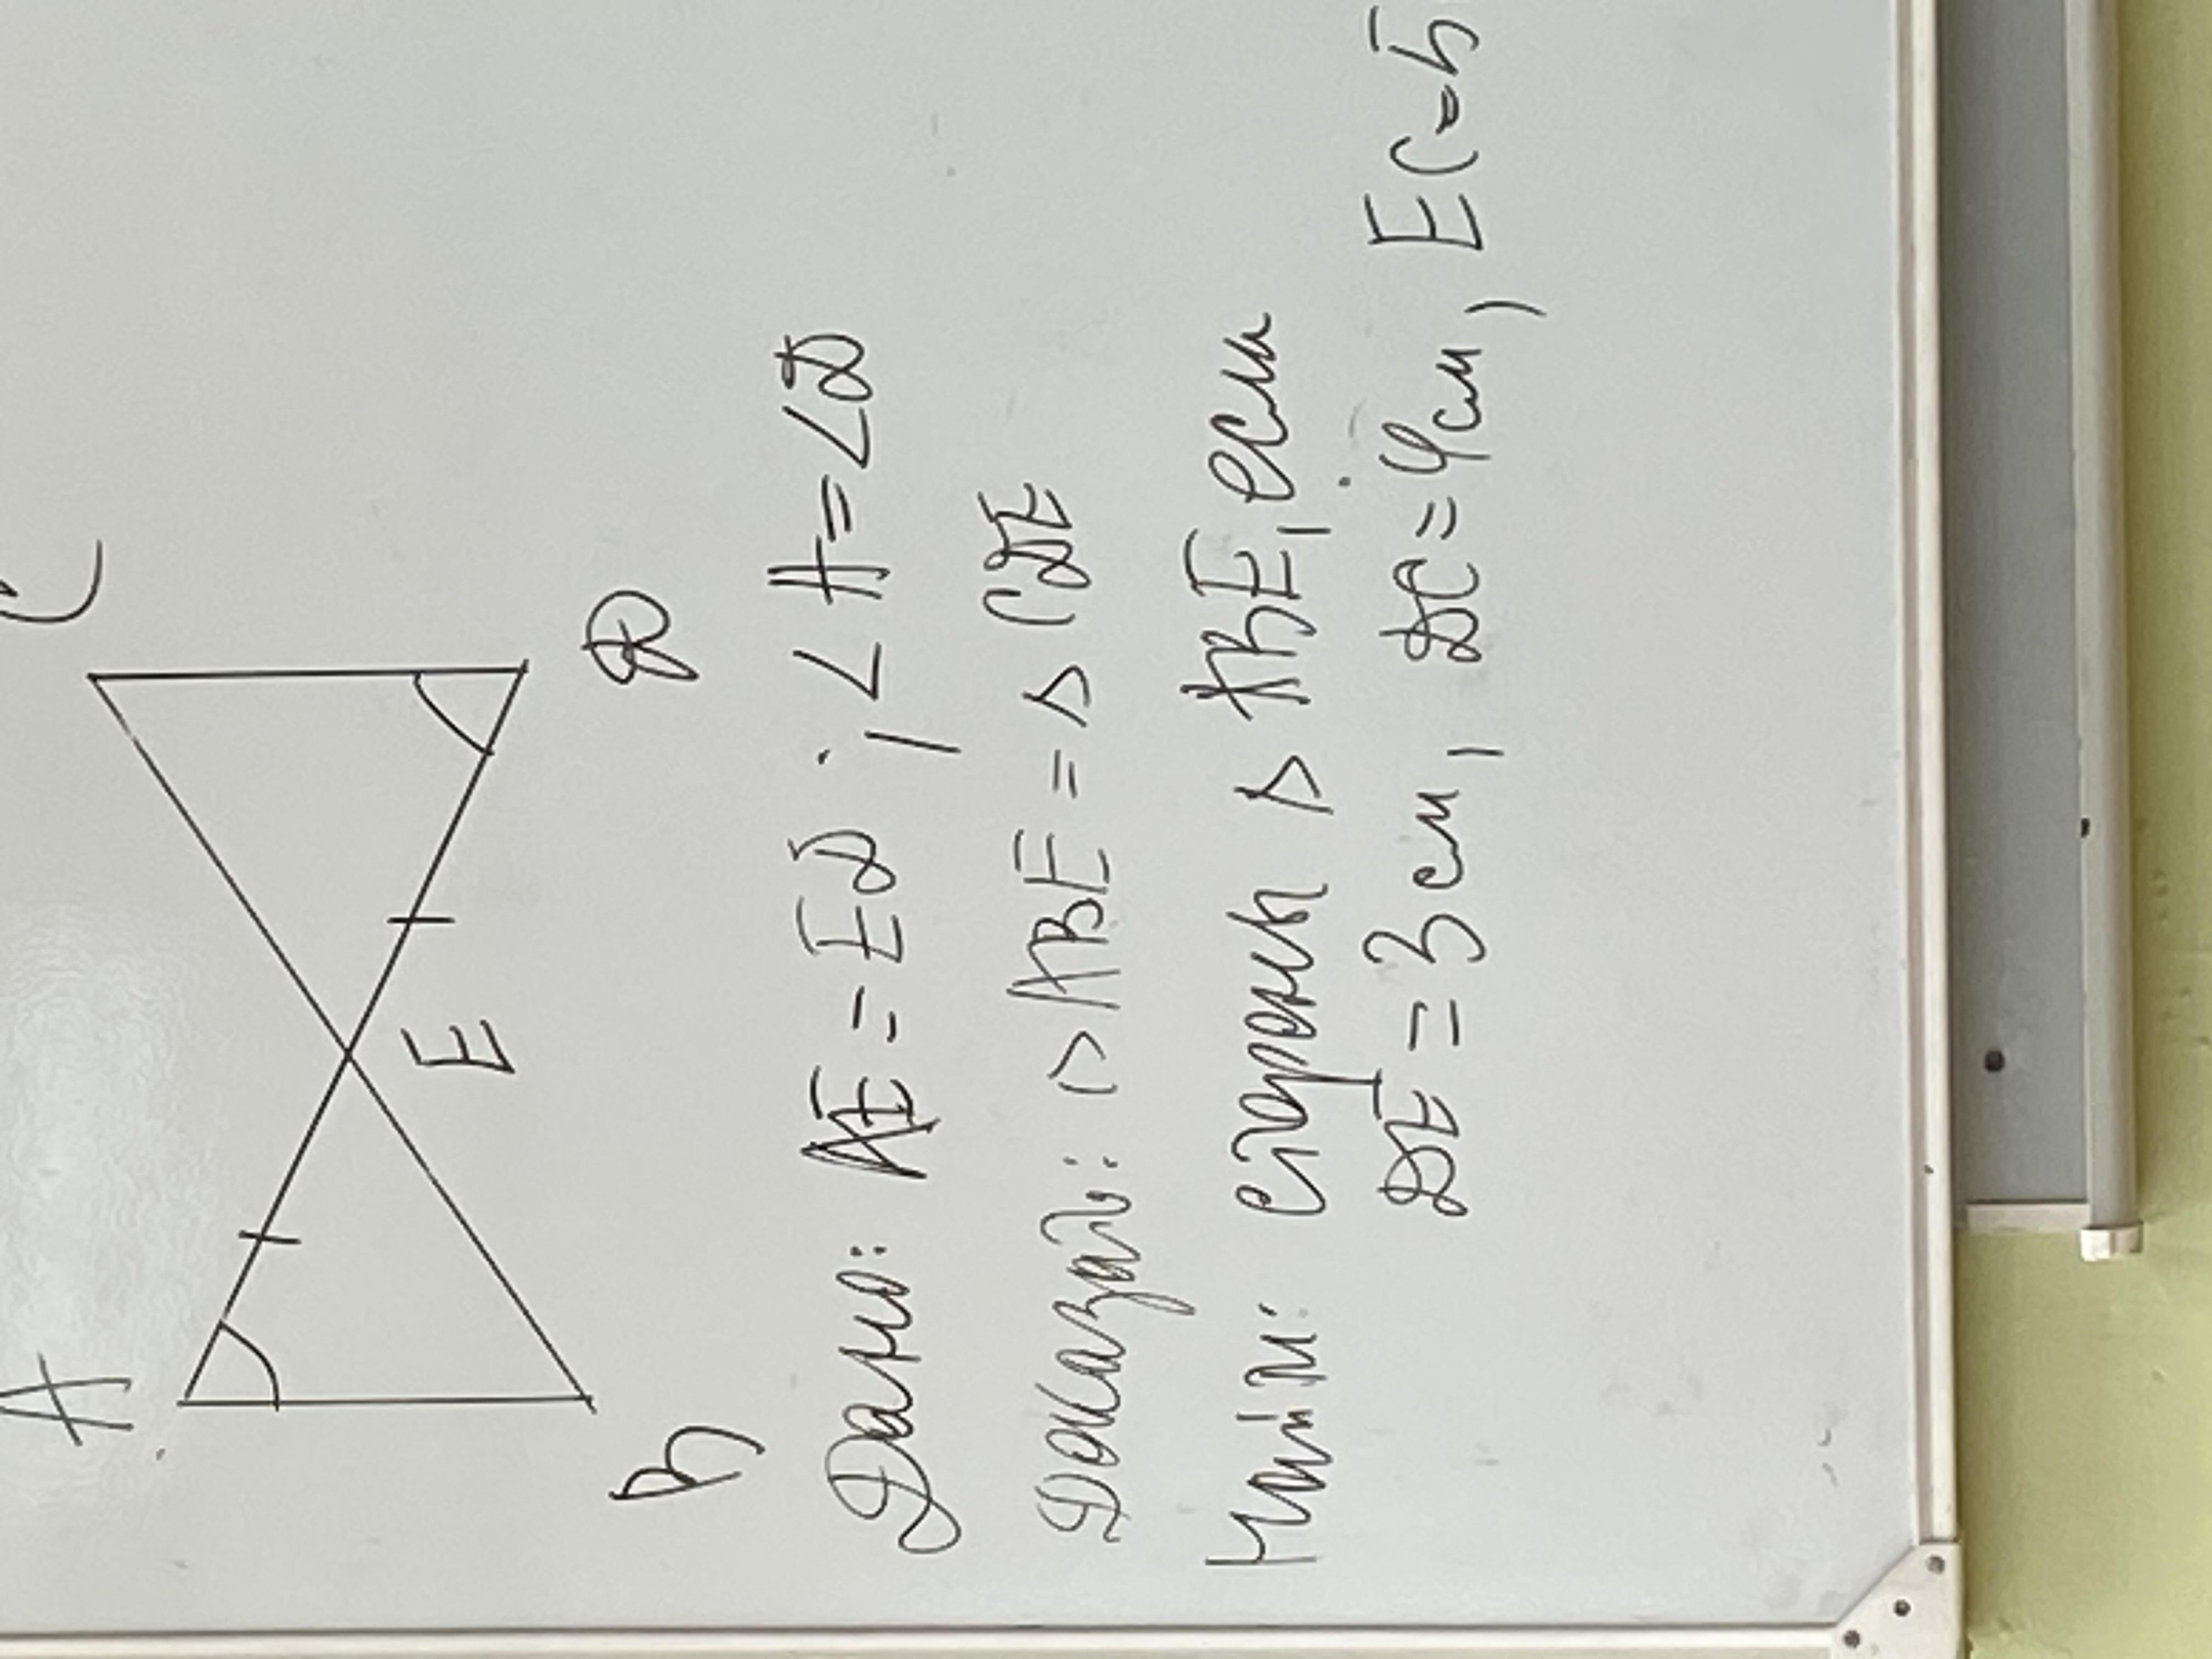 A
C
E
B
D
Дано: AE = ED ; ∠A = ∠D
Доказать: △ABE = △CDE
Найти: стороны △ABE, если
DE = 3 см, DC = 4 см, EC = 5